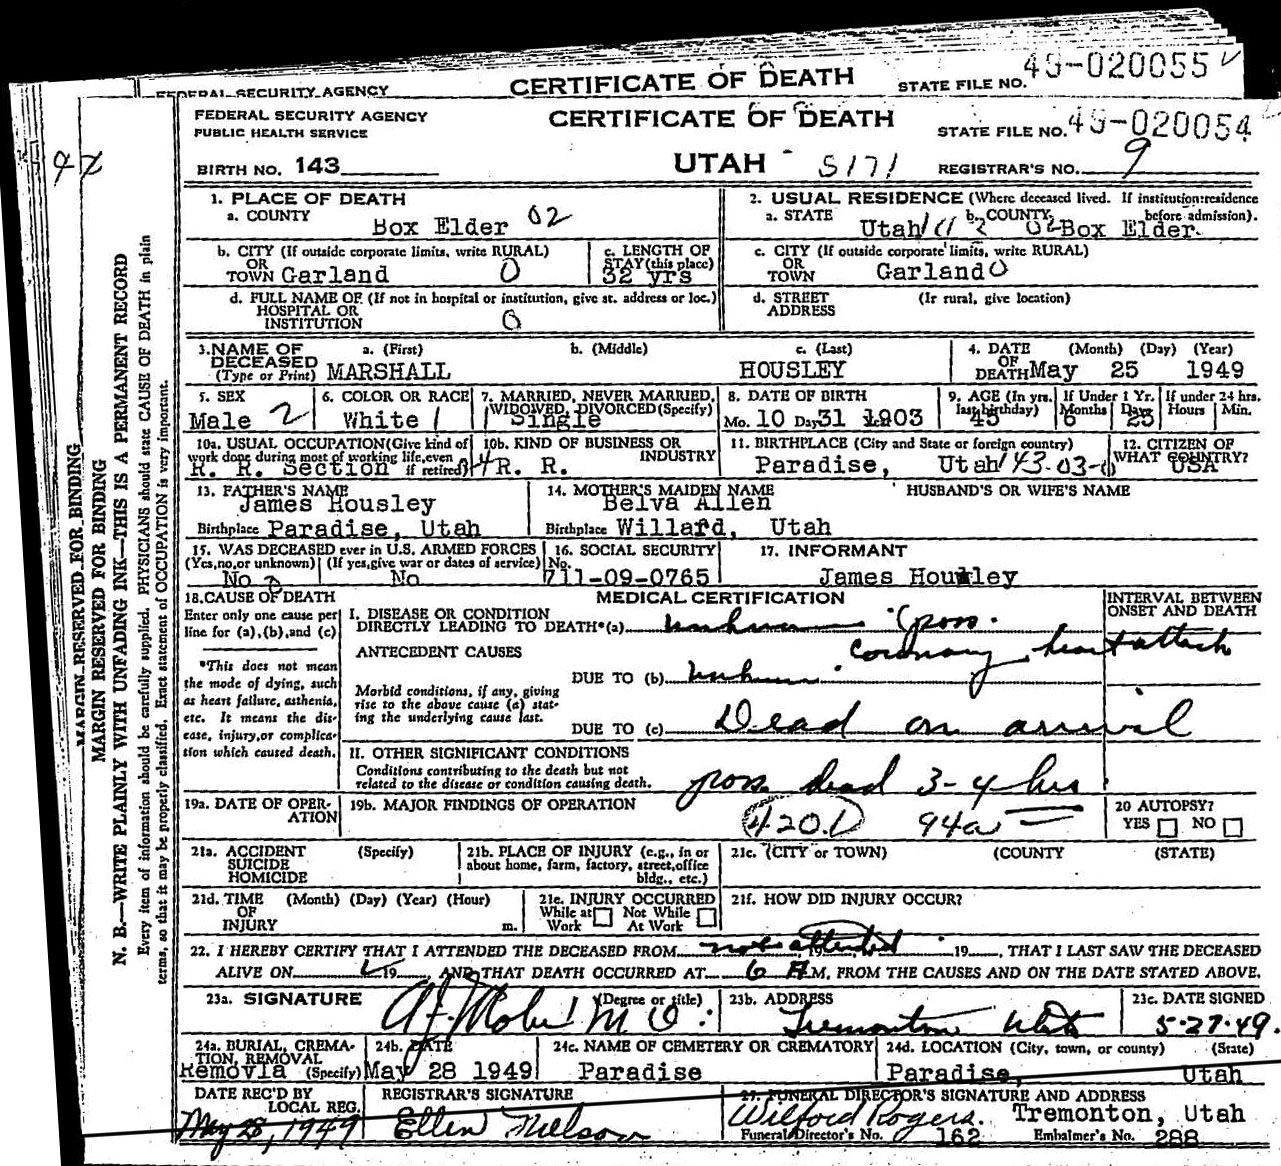 CERTIFICATE OF DEATH STATE FILE NO. 49-020055
FEDERAL SECURITY AGENCY
FEDERAL SECURITY AGENCY CERTIFICATE OF DEATH STATE FILE NO. 49-020054
PUBLIC HEALTH SERVICE
BIRTH NO. 143 UTAH - 5171 REGISTRAR'S NO. 9
1. PLACE OF DEATH 2. USUAL RESIDENCE (Where deceased lived. If institution:residence
a. COUNTY a. STATE b. COUNTY before admission).
Box Elder 02 Utah 02 Box Elder
b. CITY (If outside corporate limits, write RURAL) c. LENGTH OF c. CITY (If outside corporate limits, write RURAL)
OR STAY (this place) OR
TOWN Garland 0 32 yrs TOWN Garland 0
d. FULL NAME OF (If not in hospital or institution, give st. address or loc.) d. STREET (If rural, give location)
HOSPITAL OR ADDRESS
INSTITUTION 0
3. NAME OF a. (First) b. (Middle) c. (Last) 4. DATE (Month) (Day) (Year)
DECEASED OF
(Type or Print) MARSHALL HOUSLEY DEATH May 25 1949
5. SEX 6. COLOR OR RACE 7. MARRIED, NEVER MARRIED, 8. DATE OF BIRTH 9. AGE (In yrs. If Under 1 Yr. If under 24 hrs.
WIDOWED, DIVORCED (Specify) last birthday) Months Days Hours Min.
Male 2 White 1 Single Mo. 10 Day 31 1903 45 6 25
10a. USUAL OCCUPATION (Give kind of 10b. KIND OF BUSINESS OR 11. BIRTHPLACE (City and State or foreign country) 12. CITIZEN OF
work done during most of working life, even INDUSTRY WHAT COUNTRY?
R. R. Section if retired) R. R. Paradise, Utah USA
13. FATHER'S NAME 14. MOTHER'S MAIDEN NAME HUSBAND'S OR WIFE'S NAME
James Housley Belva Allen
Birthplace Paradise, Utah Birthplace Willard, Utah
15. WAS DECEASED ever in U.S. ARMED FORCES 16. SOCIAL SECURITY 17. INFORMANT
(Yes, no, or unknown) (If yes, give war or dates of service) No.
No No 711-09-0765 James Housley
18. CAUSE OF DEATH MEDICAL CERTIFICATION INTERVAL BETWEEN
ONSET AND DEATH
Enter only one cause per
line for (a), (b), and (c)
I. DISEASE OR CONDITION
DIRECTLY LEADING TO DEATH*(a) unknown (poss.
coronary heart attack
ANTECEDENT CAUSES
DUE TO (b) unknown
*This does not mean
the mode of dying, such
as heart failure, asthenia,
etc. It means the dis-
ease, injury, or complica-
tion which caused death.
Morbid conditions, if any, giving
rise to the above cause (a) stat-
ing the underlying cause last.
DUE TO (c) Dead on arrival
II. OTHER SIGNIFICANT CONDITIONS
Conditions contributing to the death but not
related to the disease or condition causing death.
poss. dead 3-4 hrs
19a. DATE OF OPER- 19b. MAJOR FINDINGS OF OPERATION 20 AUTOPSY?
ATION 420.1 94a YES NO
21a. ACCIDENT (Specify) 21b. PLACE OF INJURY (e.g., in or 21c. (CITY or TOWN) (COUNTY (STATE)
SUICIDE about home, farm, factory, street, office
HOMICIDE bldg., etc.)
21d. TIME (Month) (Day) (Year) (Hour) 21e. INJURY OCCURRED 21f. HOW DID INJURY OCCUR?
OF While at Not While
INJURY m. Work At Work
22. I HEREBY CERTIFY THAT I ATTENDED THE DECEASED FROM not attended, 19, 19, THAT I LAST SAW THE DECEASED
ALIVE ON 19, AND THAT DEATH OCCURRED AT 6 A M, FROM THE CAUSES AND ON THE DATE STATED ABOVE.
23a. SIGNATURE (Degree or title) 23b. ADDRESS 23c. DATE SIGNED
M D Tremonton Utah 5-27-49.
24a. BURIAL, CREMA- 24b. DATE 24c. NAME OF CEMETERY OR CREMATORY 24d. LOCATION (City, town, or county) (State)
TION, REMOVAL
Removla (Specify) May 28 1949 Paradise Paradise, Utah
DATE REC'D BY REGISTRAR'S SIGNATURE 27. FUNERAL DIRECTOR'S SIGNATURE AND ADDRESS
LOCAL REG.
May 28, 1949 Ellen Nielson Wilford Rogers. Tremonton, Utah
Funeral Director's No. 162 Embalmer's No. 288
MARGIN RESERVED FOR BINDING
MARGIN RESERVED FOR BINDING
N. B.—WRITE PLAINLY WITH UNFADING INK—THIS IS A PERMANENT RECORD
Every item of information should be carefully supplied. PHYSICIANS should state CAUSE OF DEATH in plain
terms, so that it may be properly classified. Exact statement of OCCUPATION is very important.